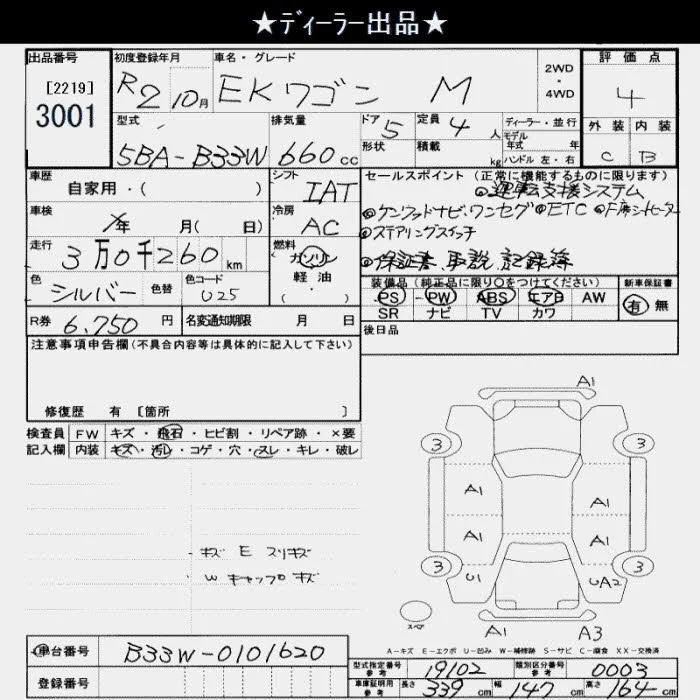 ★ディーラー出品★
出品番号 初度登録年月 車名・グレード 2WD・4WD 評価点
[2219] 3001 R2 10月 EKワゴン M 4
型式 排気量 ドア 定員 ディーラー・並行 外装 内装
5BA-B33W 660cc 5 4人 モデル年式 年 C B
形状 積載 kg ハンドル 左・右
車歴 シフト セールスポイント (正常に機能するものに限ります)
自家用・( ) IAT ◎運転支援システム
車検 年 月( 日) 冷房 AC ◎ケンウッドナビ.ワンセグ ◎ETC ◎F席シートヒーター
走行 3万0千260km 燃料 ガソリン ◎ステアリングスイッチ
軽油 ◎保証書.取説.記録簿
色 シルバー 色替 色コード U25 ( )
装備品(純正品に限り○をつけてください) 新車保証書
PS PW ABS エアB AW 有 無
SR ナビ TV カワ
R券 6,750円 名変通知期限 月 日 後日品
注意事項申告欄(不具合内容等は具体的に記入して下さい)
修復歴 有 [箇所 ]
検査員 FW キズ・飛石・ヒビ割・リペア跡・×要
記入欄 内装 キズ・汚レ・コゲ・穴・スレ・キレ・破レ
A1
3 3
A1 A1
A1 A1
3 3
U1 UA2
スペア
A1 A3
-キズ E スリキズ
W キャップ キズ
A-キズ E-エクボ U-凹み W-補修跡 S-サビ C-腐食 XX-交換済
車台番号 B33W-0101620
登録番号
型式指定番号 参考 19102 類別区分番号 参考 0003
車庫証明用 参考 長さ 339cm 幅 147cm 高さ 164cm